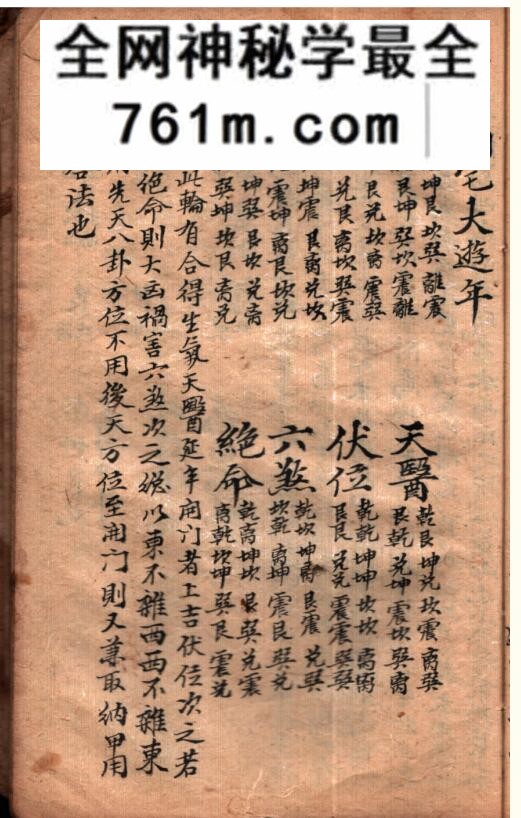 全网神秘学最全
761m.com
宅大遊年
坤艮坎巽離震
艮坤巽坎震離
艮兌坎离震巽
兌艮离坎巽震
坤震艮离兌坎
震坤离艮坎兌
坤巽艮坎兌离
巽坤坎艮离兌
天醫
乾艮坤兌坎震离巽
艮乾兌坤震坎巽离
伏位
乾乾坤坤坎坎离离
艮艮兌兌震震巽巽
六煞
乾坎坤离艮震兌巽
坎乾离坤震艮巽兌
絕命
乾离坤坎艮巽兌震
离乾坎坤巽艮震兌
此輪有合得生氣天醫延年開门者上吉伏位次之若
絕命則大凶禍害六煞次之總以東不雜西西不雜東
用先天八卦方位不用後天方位至開门則又兼取納甲用
法也